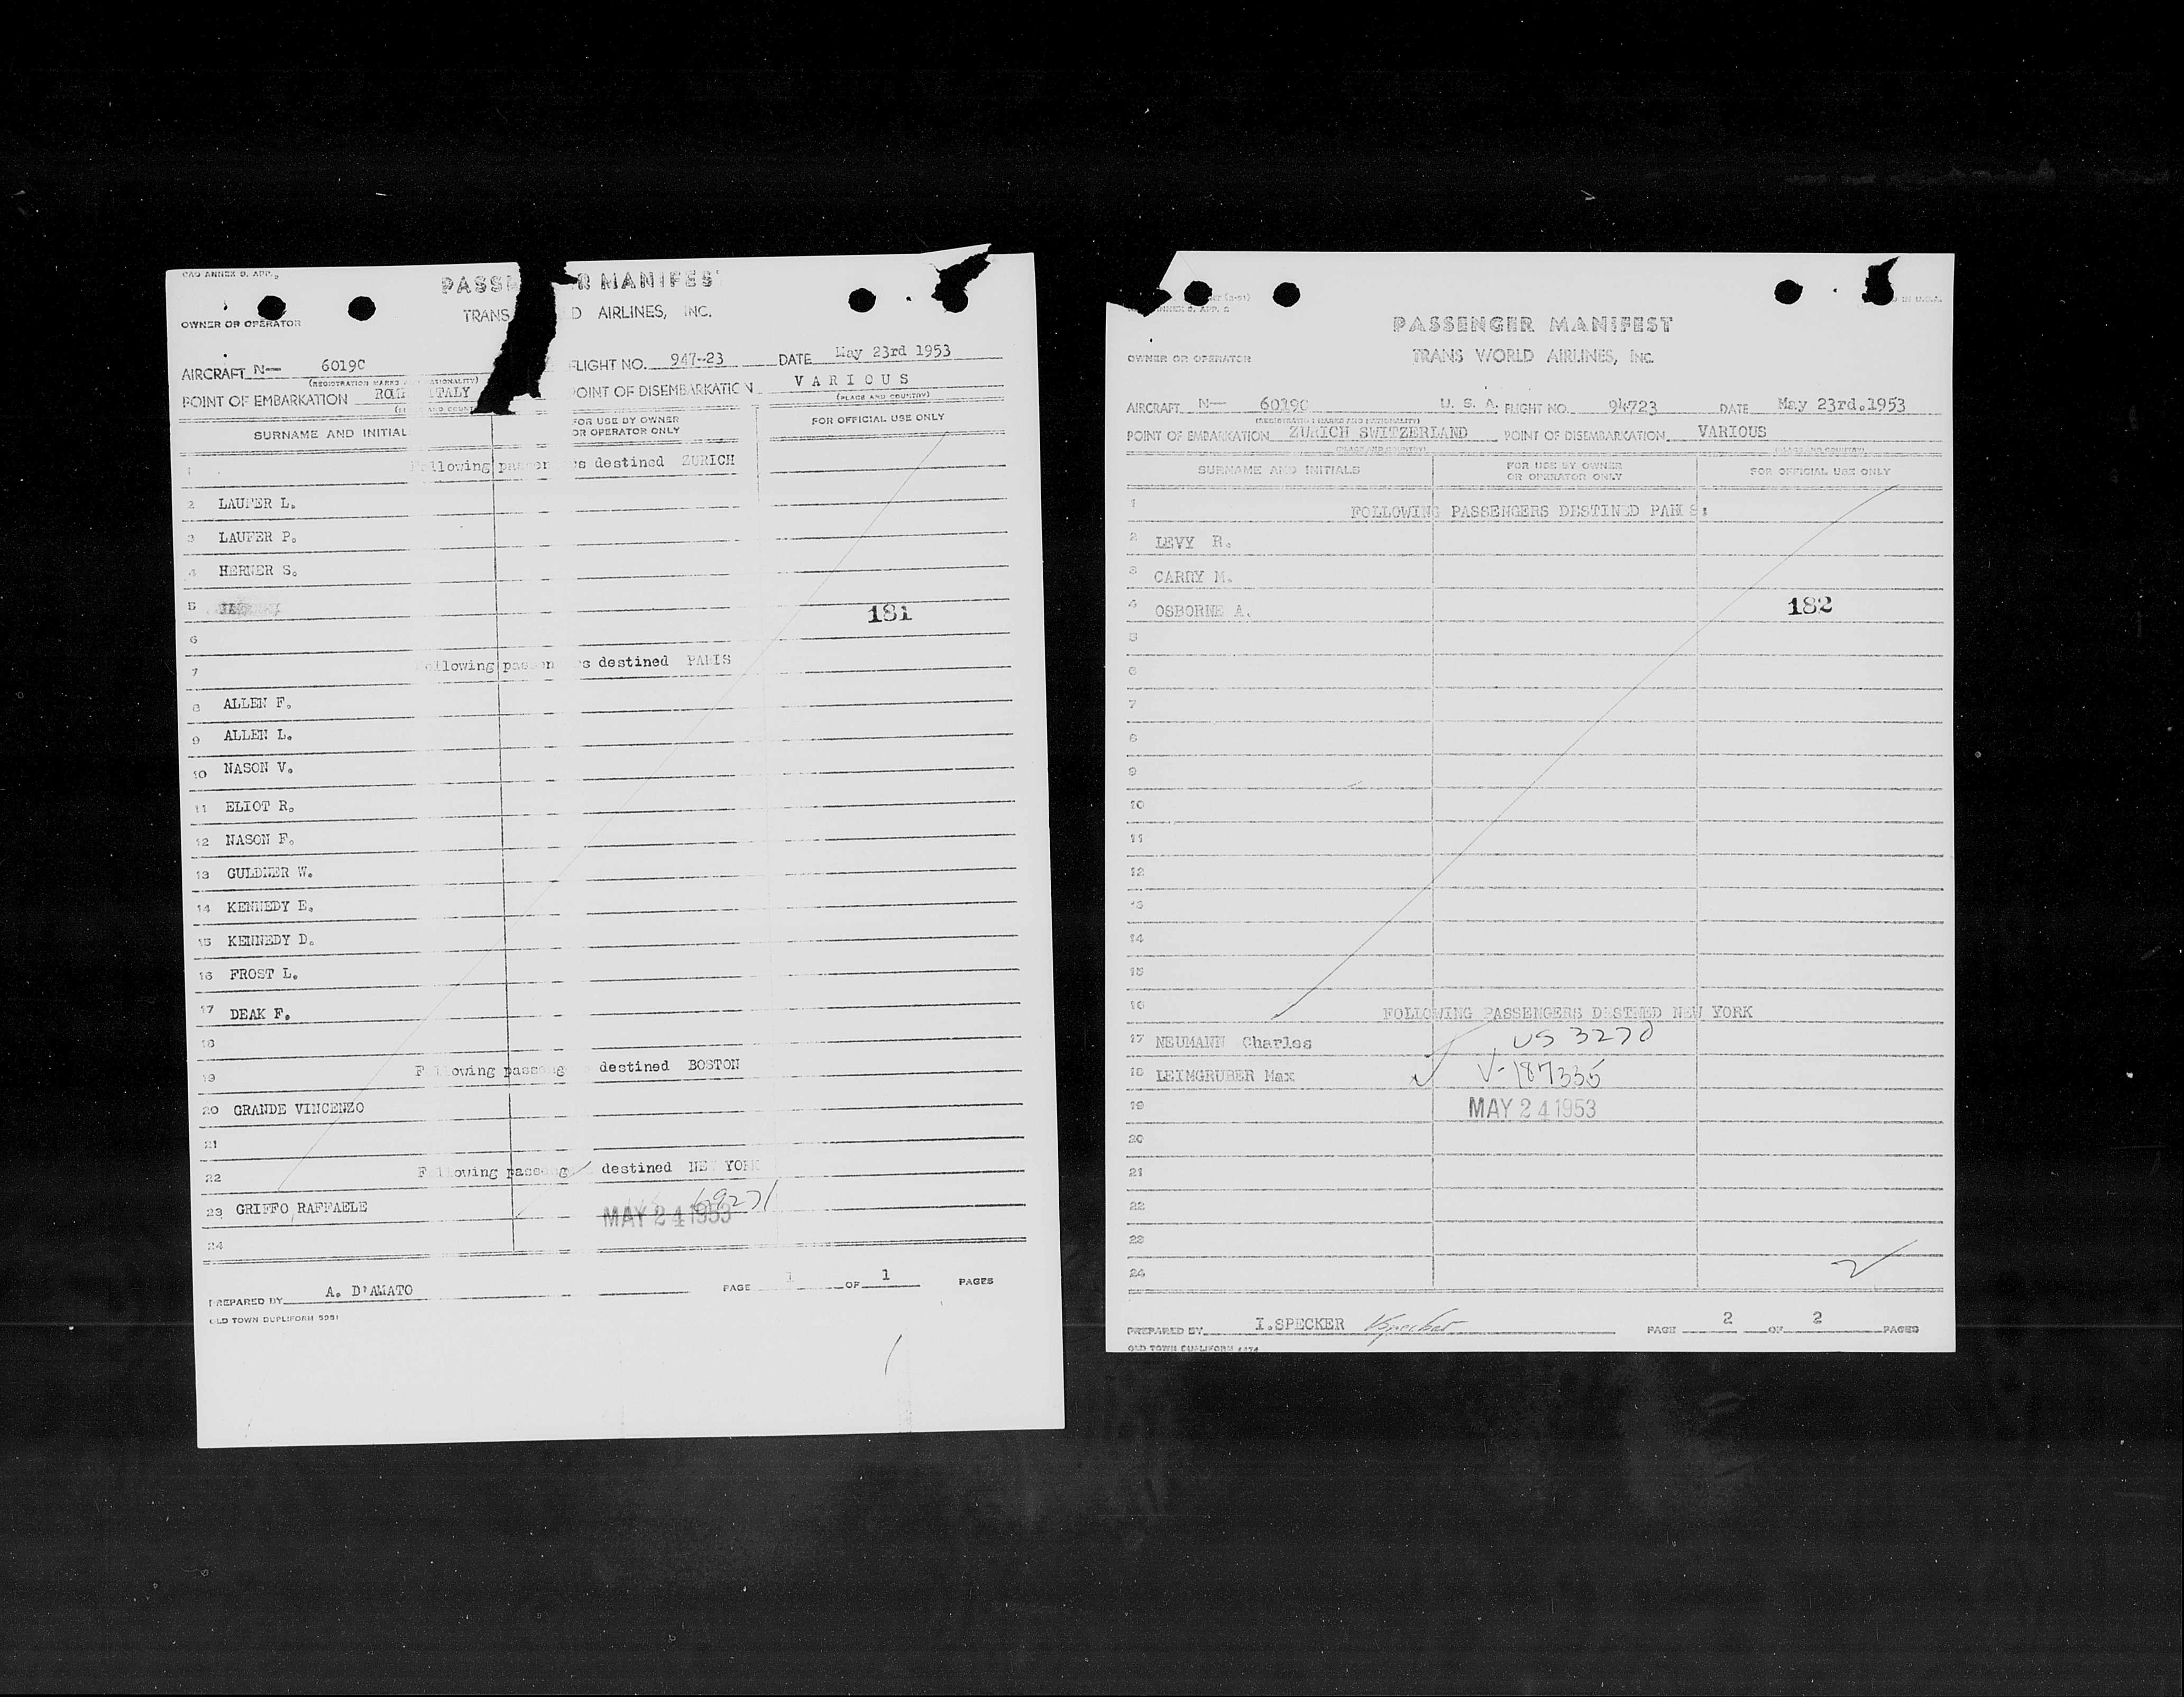 PASSE R MANIFEST
OWNER OR OPERATOR TRANS D AIRLINES, INC.
AIRCRAFT N— 6019C FLIGHT NO. 947-23 DATE May 23rd 1953
(REGISTRATION MARKS NATIONALITY)
POINT OF EMBARKATION ITALY POINT OF DISEMBARKATION VARIOUS
(PLACE AND COUNTRY)
SURNAME AND INITIAL FOR USE BY OWNER OR OPERATOR ONLY FOR OFFICIAL USE ONLY
1 destined ZURICH
2 LAUFER L.
3 LAUFER P.
4 HERNER S.
5 181
6
7 destined PARIS
8 ALLEN F.
9 ALLEN L.
10 NASON V.
11 ELIOT R.
12 NASON F.
13 GULDNER W.
14 KENNEDY E.
15 KENNEDY D.
16 FROST L.
17 DEAK F.
18
19 destined BOSTON
20 GRANDE VINCENZO
21
22 destined NEW YORK
23 GRIFFO RAFFAELE MAY 24 1953
24
PREPARED BY A. D'AMATO PAGE 1 OF 1 PAGES
OLD TOWN DUPLIFORM
PASSENGER MANIFEST
OWNER OR OPERATOR TRANS WORLD AIRLINES, INC.
AIRCRAFT N— 6019C U. S. A. FLIGHT NO. 94723 DATE May 23rd.1953
(REGISTRATION MARKS AND NATIONALITY)
POINT OF EMBARKATION ZURICH SWITZERLAND POINT OF DISEMBARKATION VARIOUS
(PLACE AND COUNTRY) (PLACE AND COUNTRY)
SURNAME AND INITIALS FOR USE BY OWNER OR OPERATOR ONLY FOR OFFICIAL USE ONLY
1 FOLLOWING PASSENGERS DESTINED PARIS:
2 LEVY R.
3 CARDY M.
4 OSBORNE A. 182
5
6
7
8
9
10
11
12
13
14
15
16 FOLLOWING PASSENGERS DESTINED NEW YORK
17 NEUMANN Charles US 3270
18 LEIMGRUBER Max V-187335
19 MAY 24 1953
20
21
22
23
24
PREPARED BY I.SPECKER ISpecker PAGE 2 OF 2 PAGES
OLD TOWN DUPLIFORM